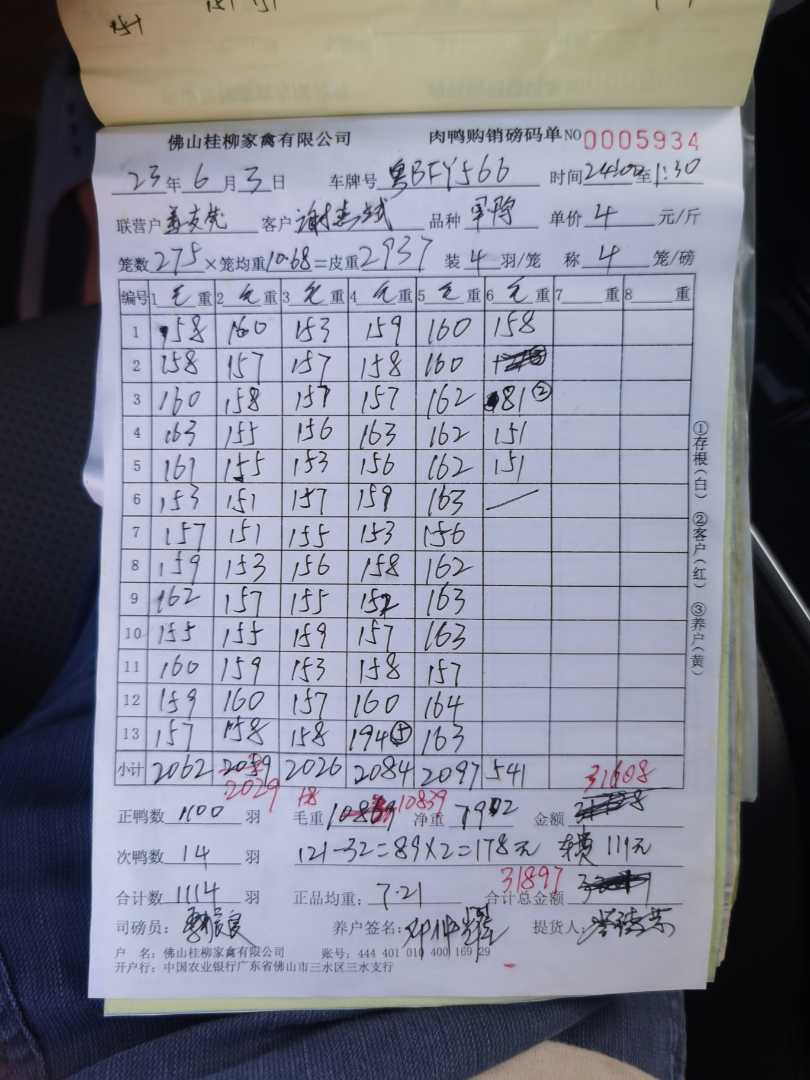 佛山桂柳家禽有限公司 肉鸭购销磅码单 NO 0005934
23年6月3日 车牌号 粤BFY566 时间 24:00至1:30
联营户 客户 谢 品种 单价 4 元/斤
笼数 275 ×笼均重 10.68 =皮重 2937 装 4 羽/笼 称 4 笼/磅
编号 1 毛 重 2 毛 重 3 毛 重 4 毛 重 5 毛 重 6 毛 重 7 重 8 重
1 158 160 153 159 160 158
2 158 157 157 158 160
3 160 158 157 157 162 81②
4 163 155 156 163 162 151
5 161 155 153 156 162 151
6 153 151 157 159 163 —
7 157 151 155 153 156
8 159 153 156 158 162
9 162 157 155 152 163
10 155 155 159 157 163
11 160 159 153 158 157
12 159 160 157 160 164
13 157 158 158 194⑤ 163
小计 2062 2029 2026 2084 2097 541 31608
正鸭数 1100 羽 毛重 10839 净重 7902 金额
次鸭数 14 羽 121-32=89×2=178元 111元
合计数 1114 羽 正品均重: 7.21 合计总金额 31897
司磅员: 养户签名: 提货人:
户 名: 佛山桂柳家禽有限公司 账号: 444 401 010 400 169 29
开户行: 中国农业银行广东省佛山市三水区三水支行
①存根(白) ②客户(红) ③养户(黄)